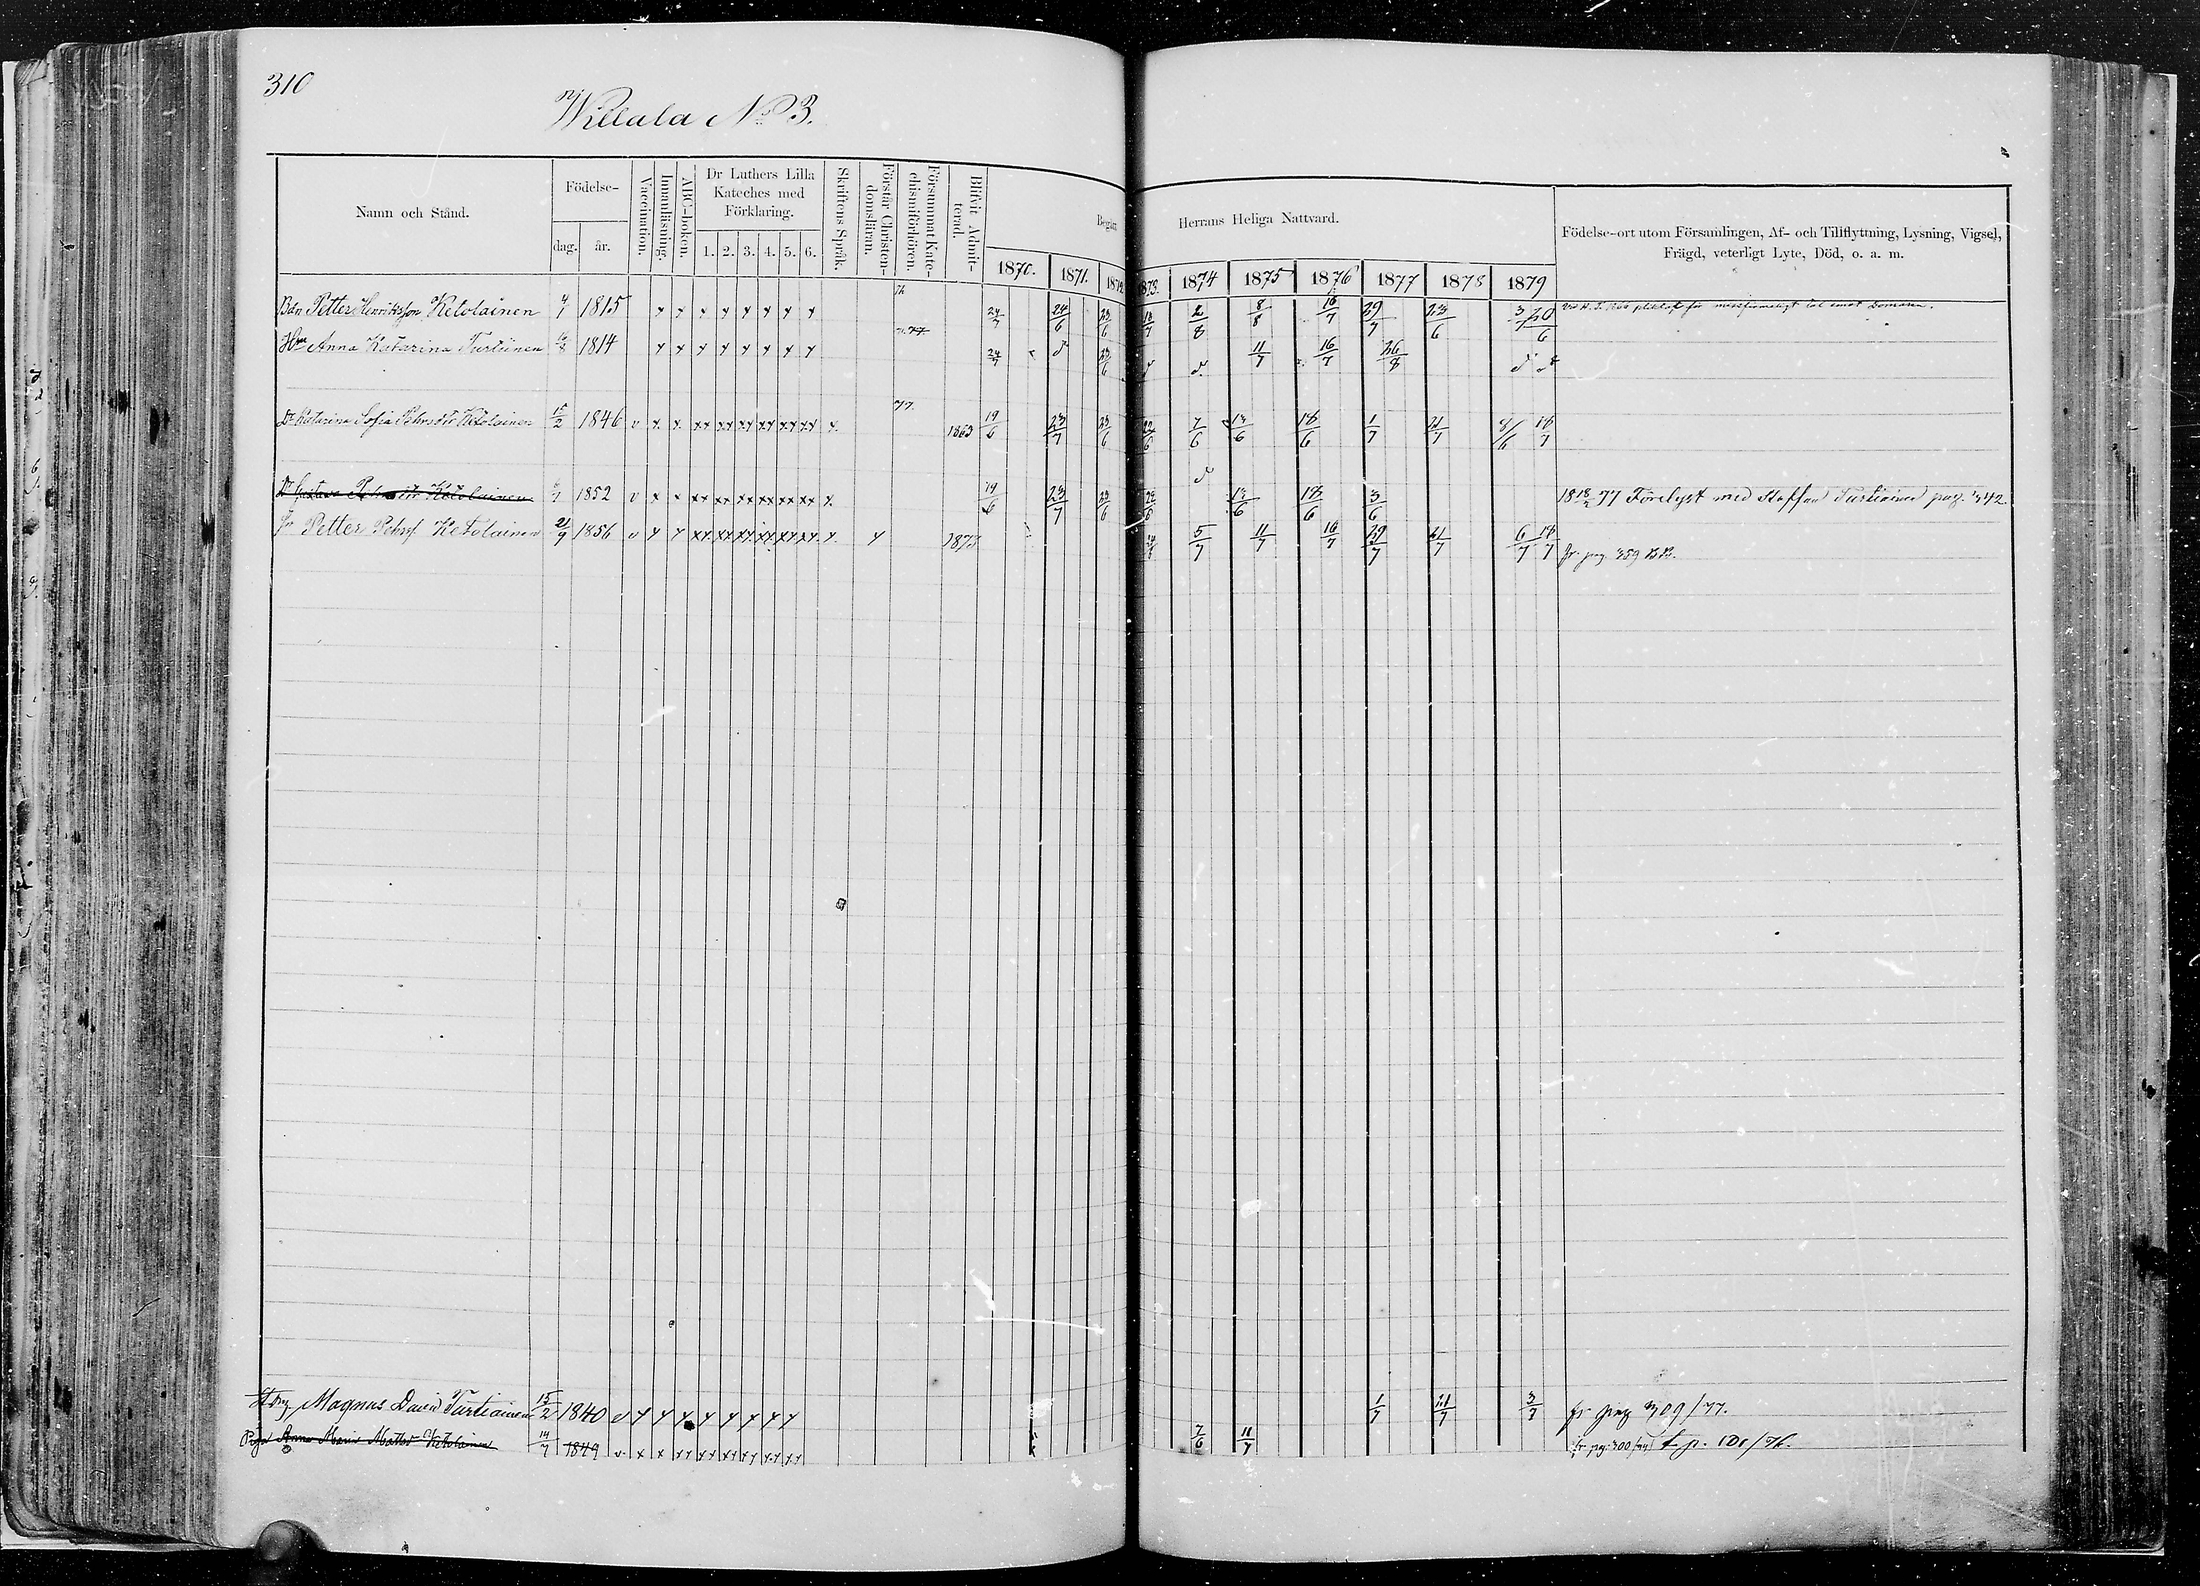 310
Willala No 3.
Namn och Stånd.
Födelse-
dag.
år.
Vaccination.
Innanläsning.
ABC-boken.
Dr Luthers Lilla
Kateches med
Förklaring.
1. 2. 3. 4. 5. 6.
Skriftens Språk.
Förstår Christen-
domsläran.
Försummat Kate-
chismiförhören.
Blifvit Admit-
terad.
Begått
Herrans Heliga Nattvard.
1870. 1871. 1872 1873. 1874 1875 1876 1877 1878 1879
Födelse-ort utom Församlingen, Af- och Tillflyttning, Lysning, Vigsel,
Frägd, veterligt Lyte, Död, o. a. m.
Bdn Petter Henriksson Ketolainen 4/7 1815 x x x x x x x x 24/7 24/6 23/6 18/7 2/8 8/8 16/7 29/7 23/6 3/7 20/6
Hm Anna Katarina Turtiinen 1814 x x x x x x x x 24/7 d 23/6 d d 11/7 16/7 26/8 d
Dr Katarina Sofia Petersdtr Ketolainen 15/2 1846 v x x xx xx xx xx xx xx x 77. 1863 19/6 23/7 23/6 22/6 7/6 13/6 18/6 1/7 21/7 8/6 18/7
Dr Gustava Ketolainen 1852 v x x xx xx xx xx xx xx x. 19/6 23/7 23/6 d 13/6 18/6 3/6 18 18/2 77 Förelyst med Staffan Turtiainen pag. 342.
Sn Petter Pehrs. Ketolainen 21/9 1856 v x x xx xx xx xx xx xx x. x 1873 5/7 11/7 16/7 29/7 21/7 6/7 18/7 fr. pag. 389
Magnus David Turtiainen 15/2 1840 v x x x x x x x x 1/7 21/7 3/7 fr pag 309/77.
Anna Maria Matsdr Ketolainen 14/7 1849 v. x x xx xx xx xx xx xx 7/6 11/7 fr pag. 300 t. p. 181/76.